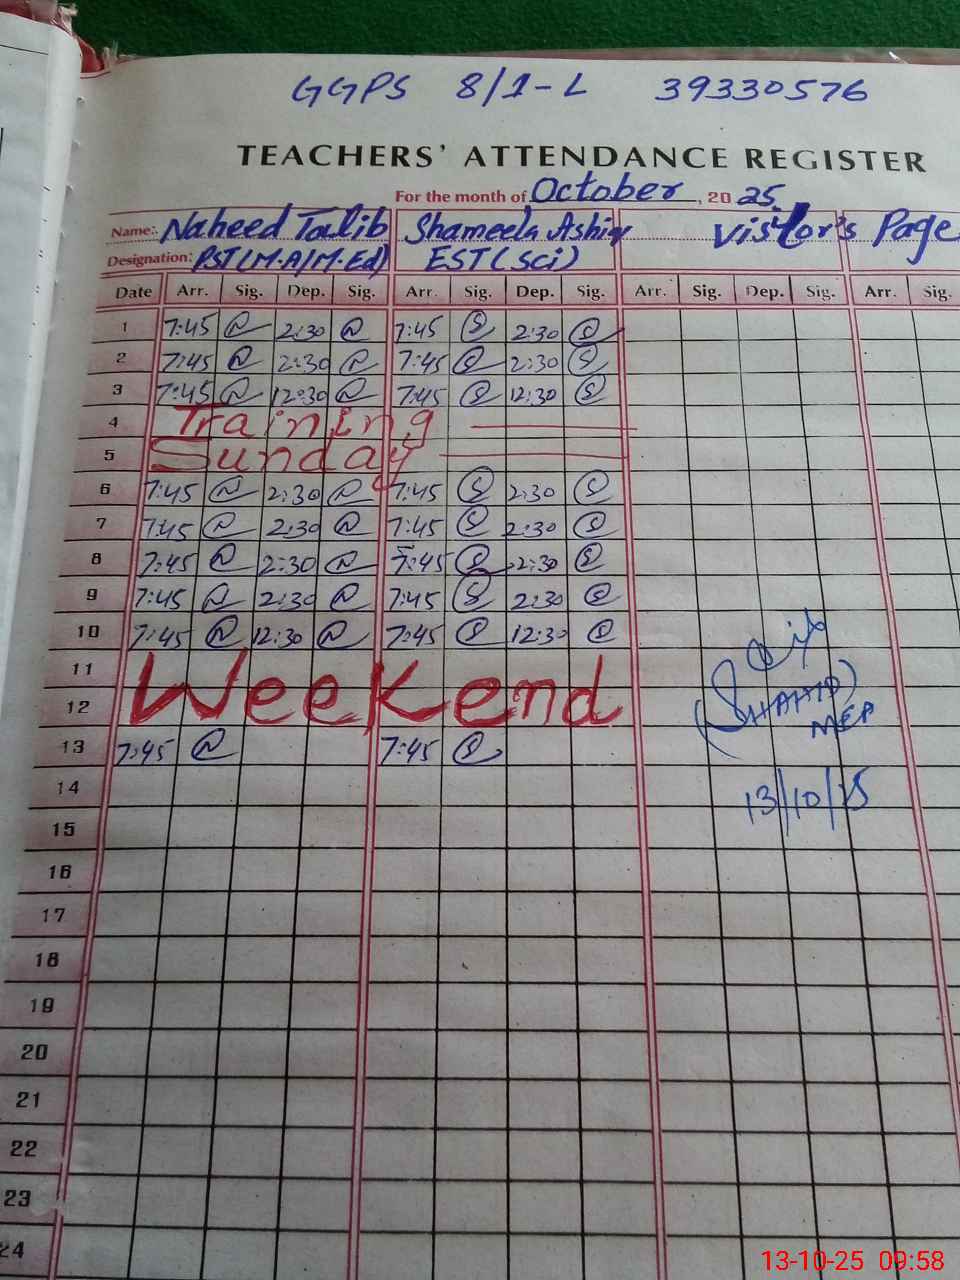 GGPS 8/1-L 39330576
TEACHERS' ATTENDANCE REGISTER
For the month of October, 2025.
Name: Naheed Talib Shameela Ashiq Visitor's Page
Designation: PST(M.A/M.Ed) EST(Sci)
Date Arr. Sig. Dep. Sig. Arr. Sig. Dep. Sig. Arr. Sig. Dep. Sig. Arr. Sig.
1 7:45 N 2:30 N 7:45 S 2:30 S
2 7:45 N 2:30 N 7:45 S 2:30 S
3 7:45 N 12:30 N 7:45 S 12:30 S
4 Training
5 Sunday
6 7:45 N 2:30 N 7:45 S 2:30 S
7 7:45 N 2:30 N 7:45 S 2:30 S
8 7:45 N 2:30 N 7:45 S 2:30 S
9 7:45 N 2:30 N 7:45 S 2:30 S
10 7:45 N 12:30 N 7:45 S 12:30 S
11
12 Weekend
(SHAHID)
MEA
13 7:45 N 7:45 S
14
13/10/25
15
16
17
18
19
20
21
22
23
24
13-10-25 09:58